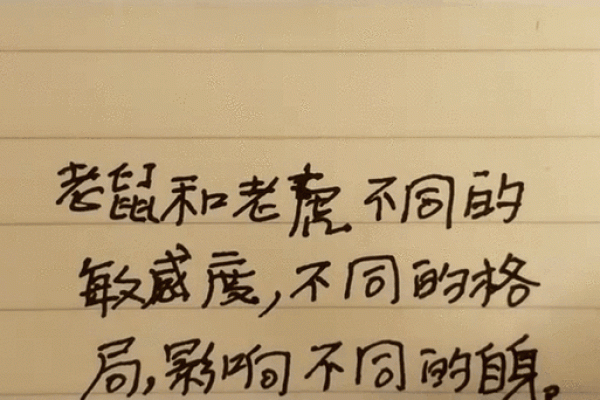 老鼠和老虎不同的
敏感度,不同的格
局,影响不同的自身。